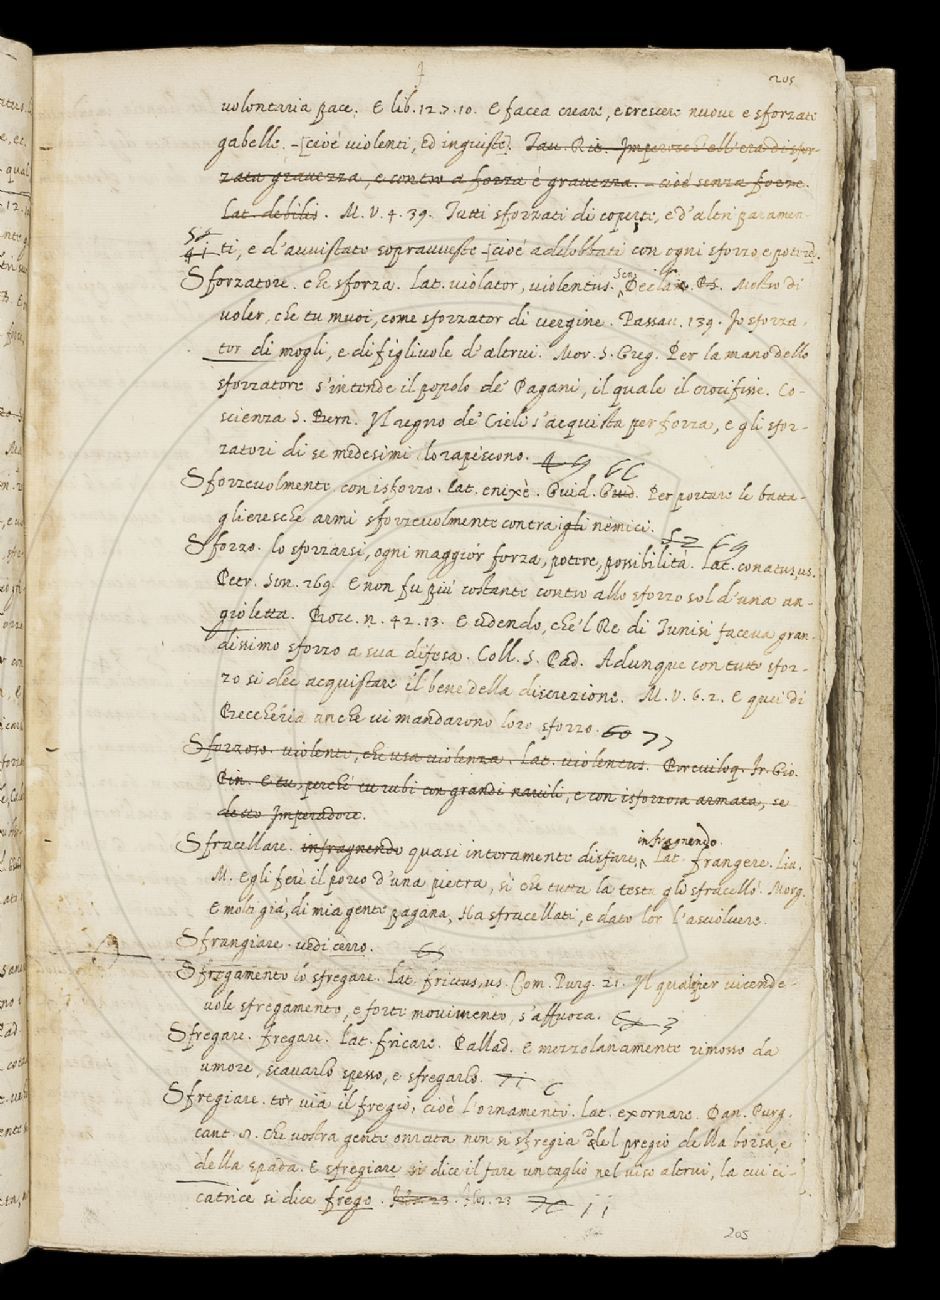 205
volontaria pace. E lib. 12. 7. 10. E facea creare, e crescere nuove e sforzate
gabelle. -[cioè violenti, ed ingiuste]. Tav. Rit. Imperocch' ell' era di sfor-
zata gravezza, e contro a forza è gravezza. - cioè senza forze.
Lat. debilis. M. V. 4. 39. Tutti sforzati di coperte, e d'altri paramen-
ti, e d'avvistate sopravveste -[cioè addobbati con ogni sforzo e potere].
Sforzatore. che sforza. Lat. violator, violentus. Declam. P. Merto di
voler, che tu muoi, come sforzator di vergine. Passav. 139. Io sforza-
tor di mogli, e di figliuole d'altrui. Mor. S. Greg. Per la mano dello
sforzatore s'intende il popolo de' Pagani, il quale il crocifisse. Co-
scienza S. Bern. Il regno de' Cieli s'acquista per forza, e gli sfor-
zatori di se medesimi lo rapiscono.
Sforzevolmente. con isforzo. Lat. enixè. Guid. Guid. Per portare le batta-
glieresche armi sforzevolmente contra igli nemici.
52 69
Sforzo. lo sforzarsi, ogni maggior forza, potere, possibilità. Lat. conatus, us.
Petr. Son. 269. E non fu più costante contro allo sforzo sol d'una an-
gioletta. Bocc. n. 42. 13. E udendo, che'l Re di Tunisi faceva gran-
dissimo sforzo a sua difesa. Coll. S. Pad. Adunque con tutto sfor-
zo si dee acquistare il bene della discrezione. M. V. 6. 2. E quei di
Beccheria anche vi mandarono loro sforzo. 60 77
Sforzoso. violento, che usa violenza. Lat. violentus. Breviloq. Fr. Gio.
Pin. E tu, perchè tu rubi con grandi navili, e con isforzosa armata, se
detto Imperadore.
Sfracellare. infragnendo quasi interamente disfare, infragnendo Lat. frangere. Liv.
M. Egli ferì il porco d'una pietra, sì che tutta la testa gli sfracellò. Morg.
E molti già, di mia gente pagana, Ha sfracellati, e dato lor l'asciolvere.
Sfrangiare. vedi cerro.
Sfregamento lo sfregare. Lat. frictus, us. Com. Purg. 21. Il qual per vicende-
vole sfregamento, e forte movimento, s'affuoca.
Sfregare. fregare. Lat. fricare. Pallad. E mezzolanamente rimosso da
umore, scavarlo spesso, e sfregarlo. 71
Sfregiare. tor via il fregio, cioè l'ornamento. Lat. exornare. Dan. Purg.
cant. 8. Che vostra gente onrata non si sfregia Del pregio della borsa, e
della spada. E sfregiare si dice il fare un taglio nel viso altrui, la cui ci-
catrice si dice frego. 23
205